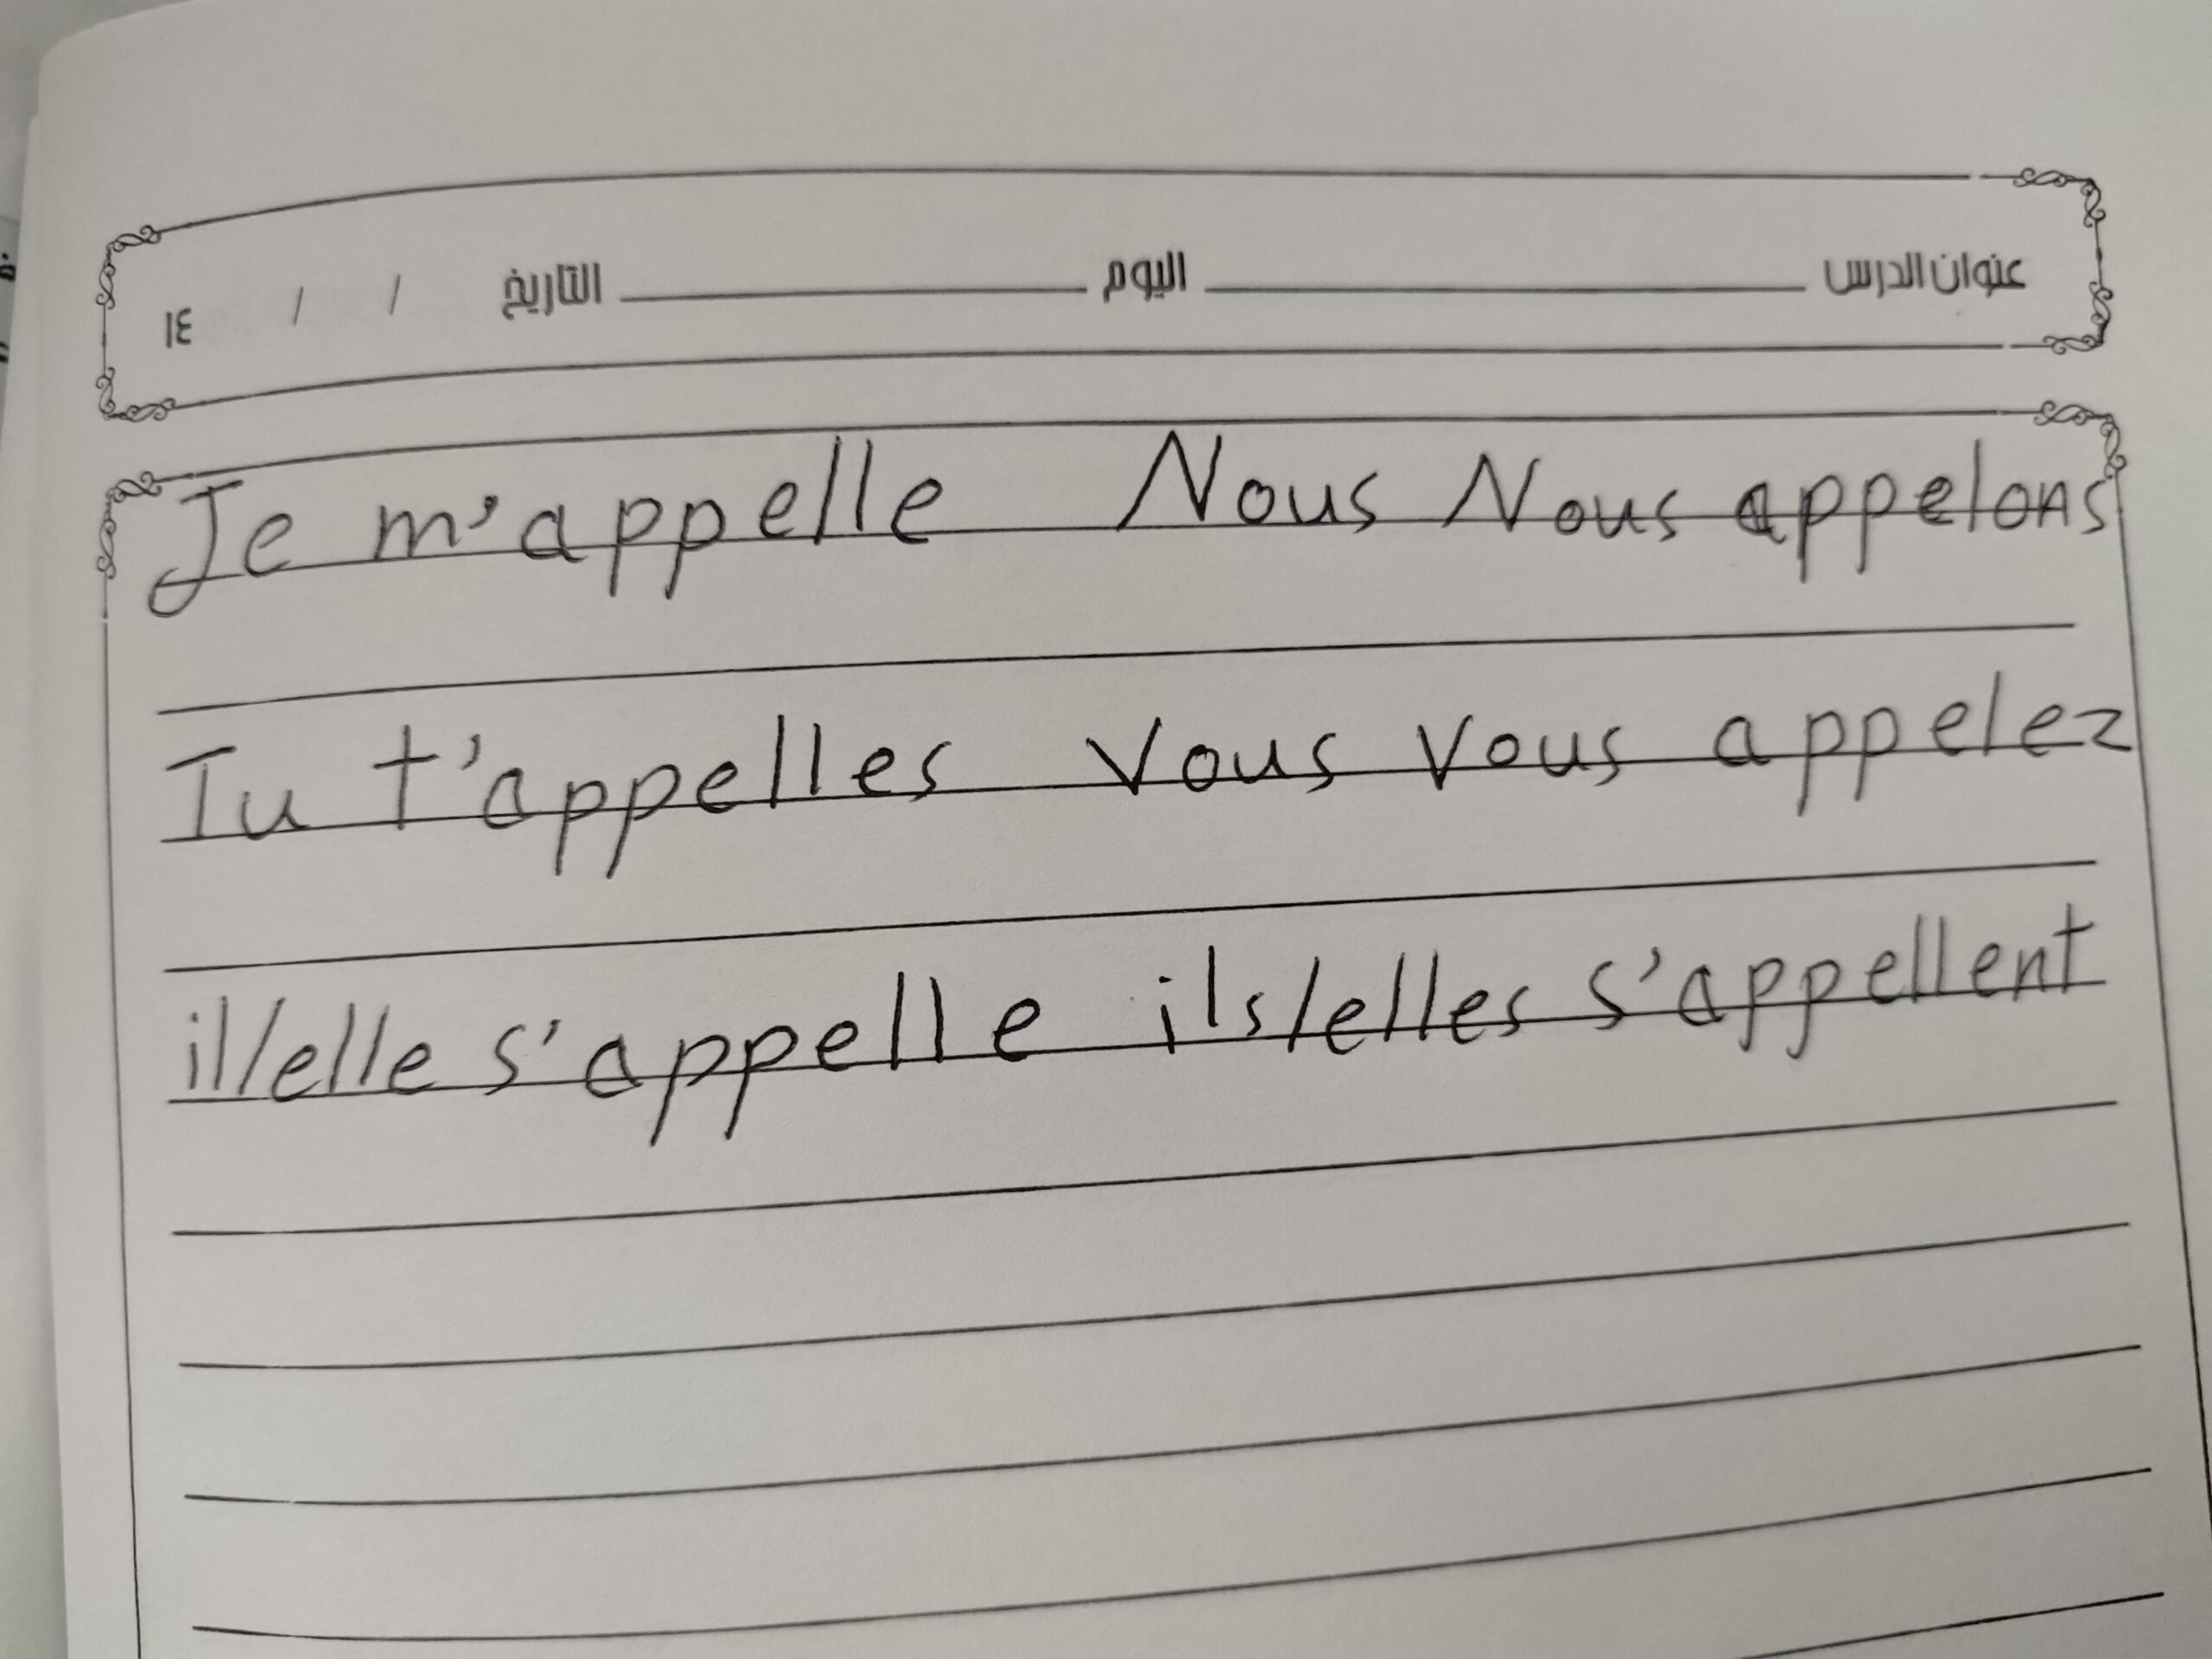 عنوان الدرس اليوم التاريخ / / ١٤
Je m'appelle Nous Nous appelons
Tu t'appelles Vous Vous appelez
il/elle s'appelle ils/elles s'appellent